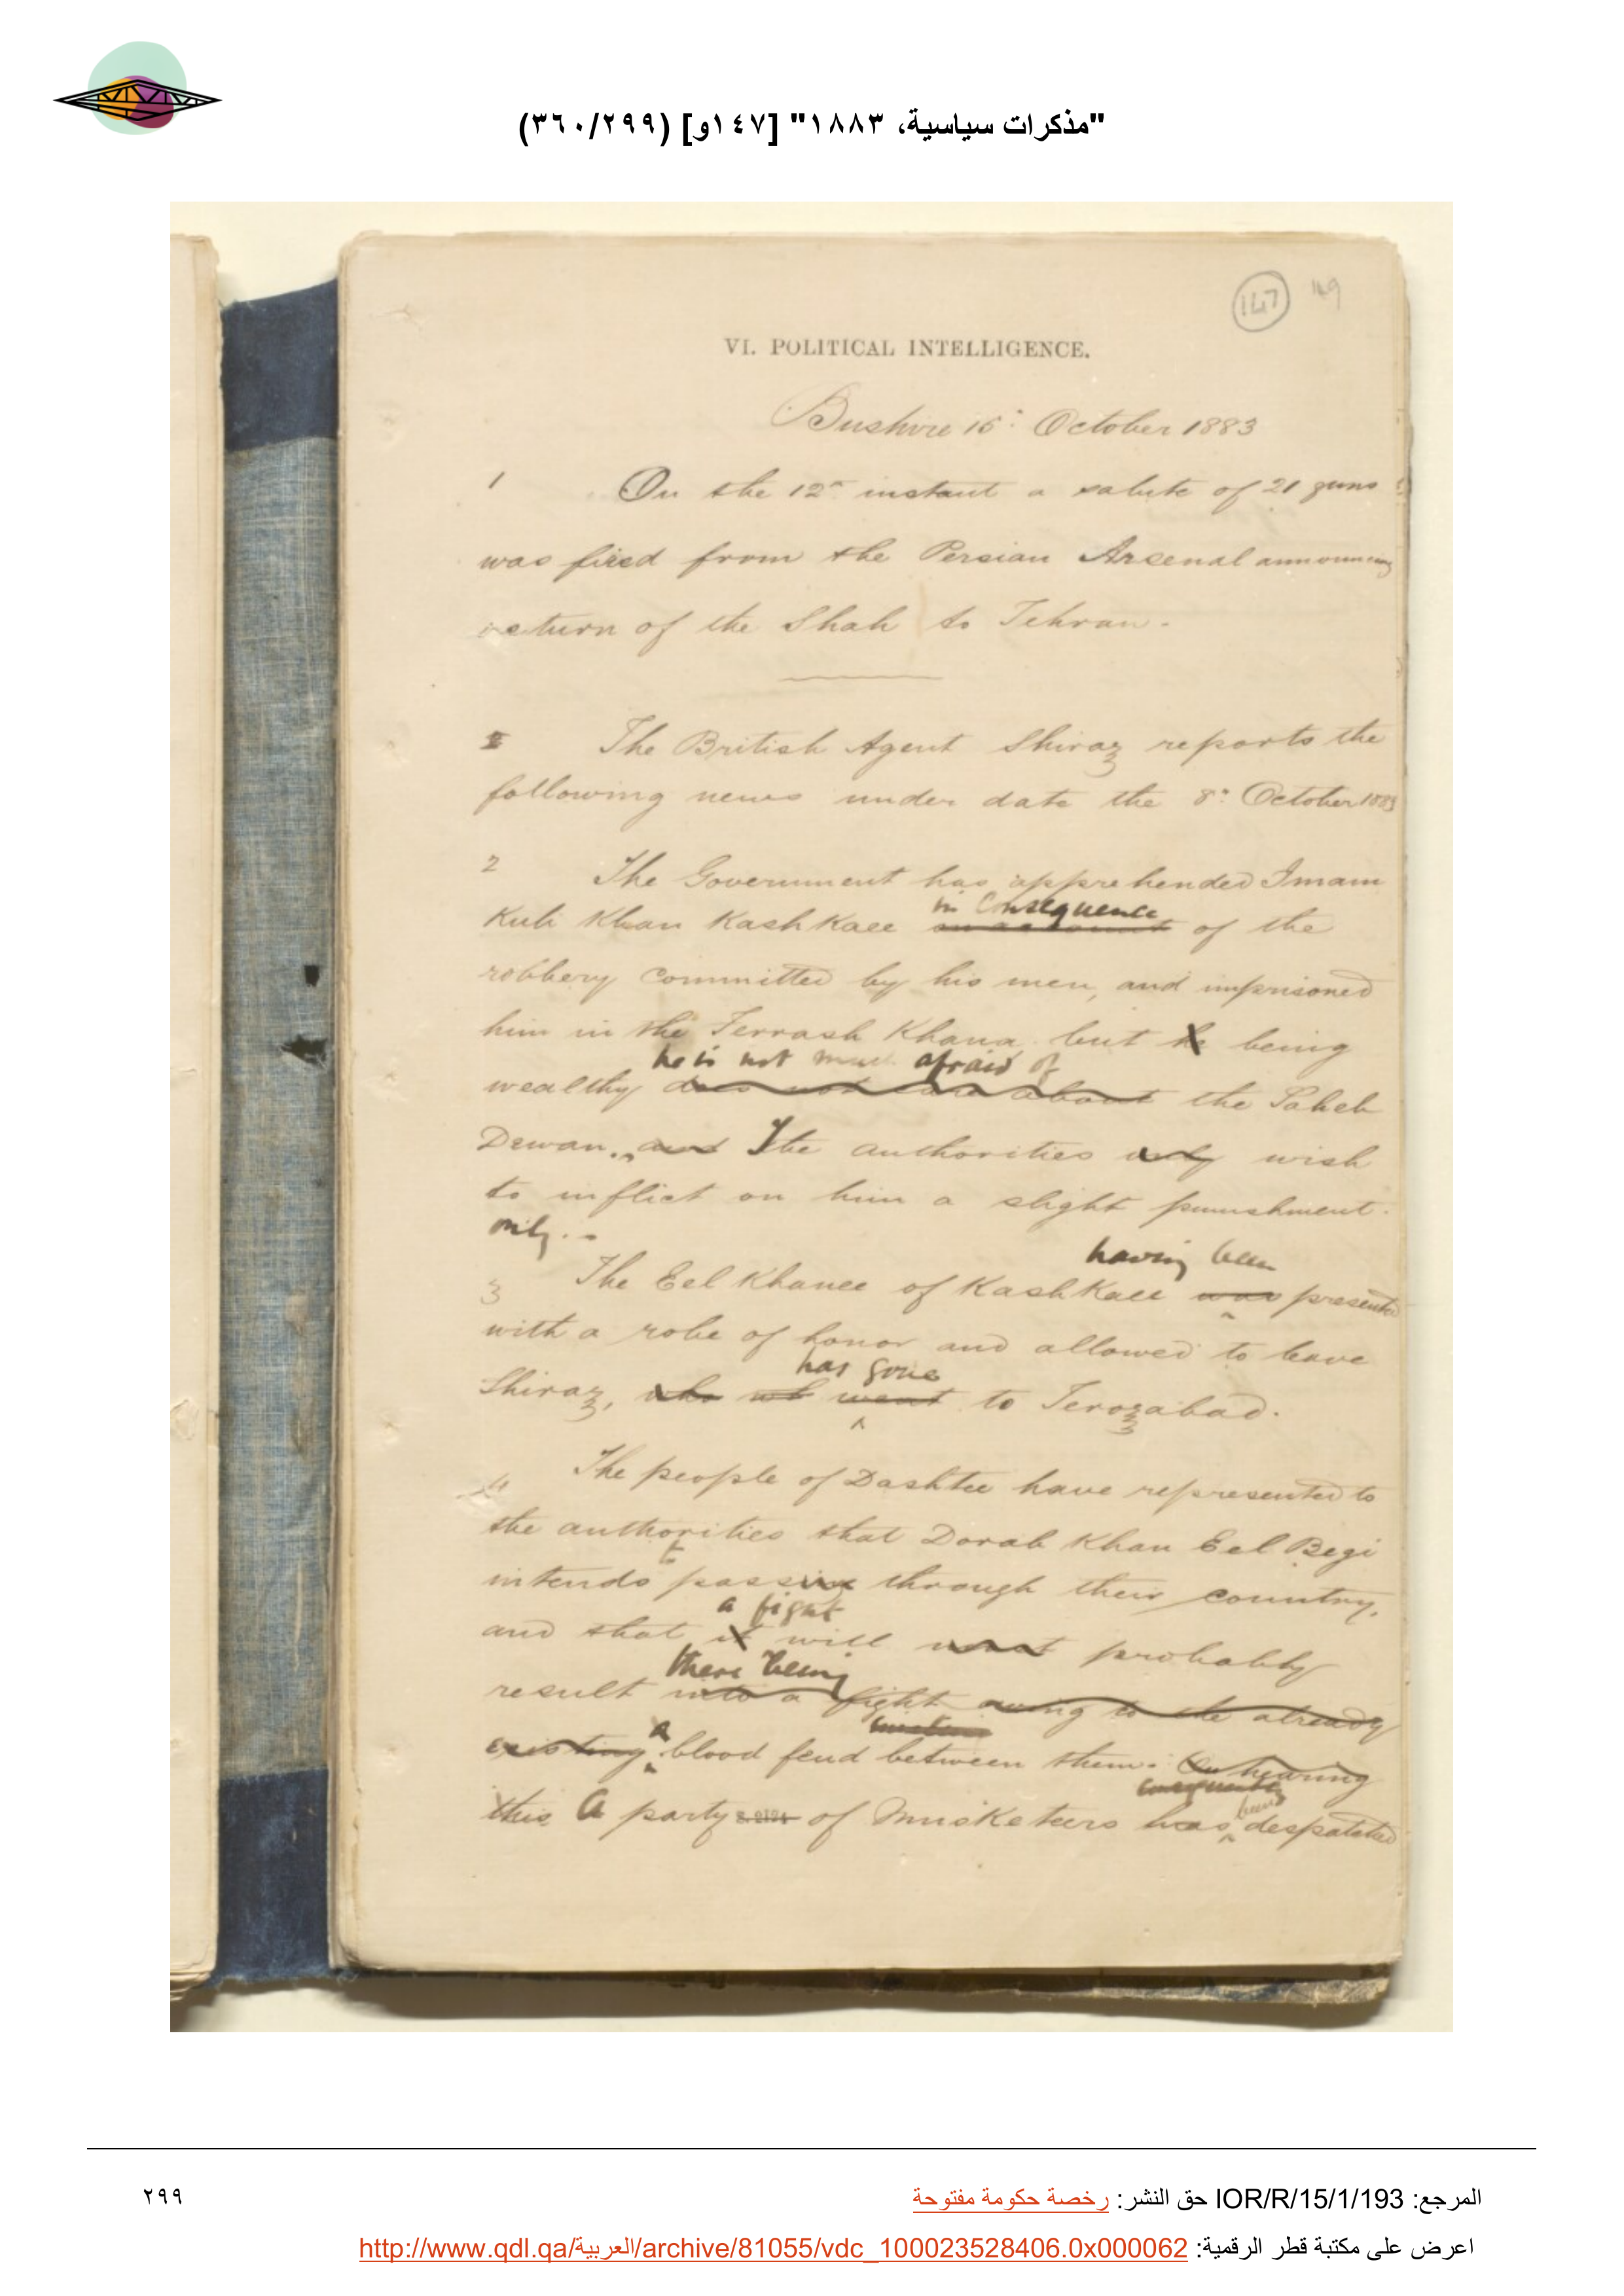 "مذكرات سياسية، ١٨٨٣" [١٤٧و] (٣٦٠/٢٩٩)
147 149
VI. POLITICAL INTELLIGENCE.
Bushire 15th October 1883
1 On the 12th instant a salute of 21 guns
was fired from the Persian Arsenal announcing
return of the Shah to Tehran.
The British Agent Shiraz reports the
following news under date the 8th October 1883
2 The Government has apprehended Imam
in consequence
Kuli Khan Kashkaee on account of the
robbery committed by his men, and imprisoned
him in the Ferrash Khana but he being
he is not much afraid of
wealthy does not care about the Saheb
Dewan. and The authorities only wish
to inflict on him a slight punishment.
only.
having been
3 The Eel Khanee of Kashkaee was presented
with a robe of honor and allowed to leave
has gone
Shiraz, who went to Ferozabad.
4 The people of Dashtee have represented to
the authorities that Dorab Khan Eel Begi
to
intends passing through their country,
a fight
and that it will most probably
there being
result into a fight owing to the already
existing a blood feud between them. On hearing
consequently
this A party of Musketeers has been despatched
المرجع: IOR/R/15/1/193 حق النشر: رخصة حكومة مفتوحة
٢٩٩
اعرض على مكتبة قطر الرقمية: http://www.qdl.qa/العربية/archive/81055/vdc_100023528406.0x000062